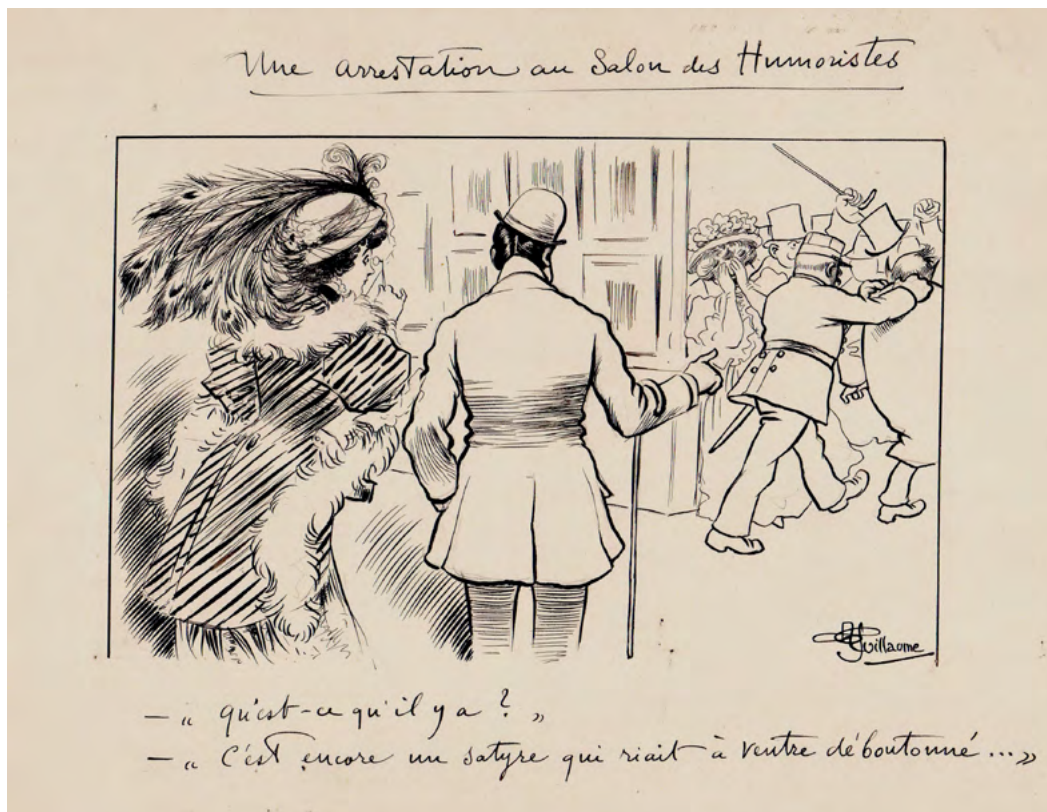 Une arrestation au Salon des Humoristes
AGuillaume
— „ qu'est-ce qu'il y a ? „
— „ C'est encore un satyre qui riait à ventre déboutonné...„